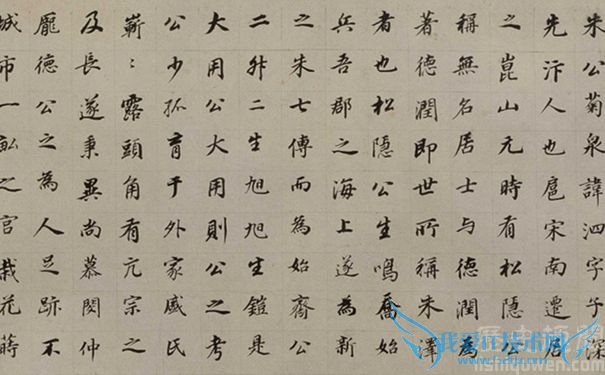 朱公菊泉諱泗字子深
先汴人也扈宋南遷居
之崑山元時有松隱公
稱無名居士与德潤為
著德潤即世所稱朱澤
者也松隱公生鳴喬始
兵吾郡之海上遂為新
之朱七傳而為始齋公
二外二生旭旭生鎧是
大用公大用則公之考
公少孤育于外家戚氏
嶄〻露頭角有亢宗之
及長遂秉異尚慕閔仲
龐德公之為人足跡不
城市一畝之宮栽花蒔